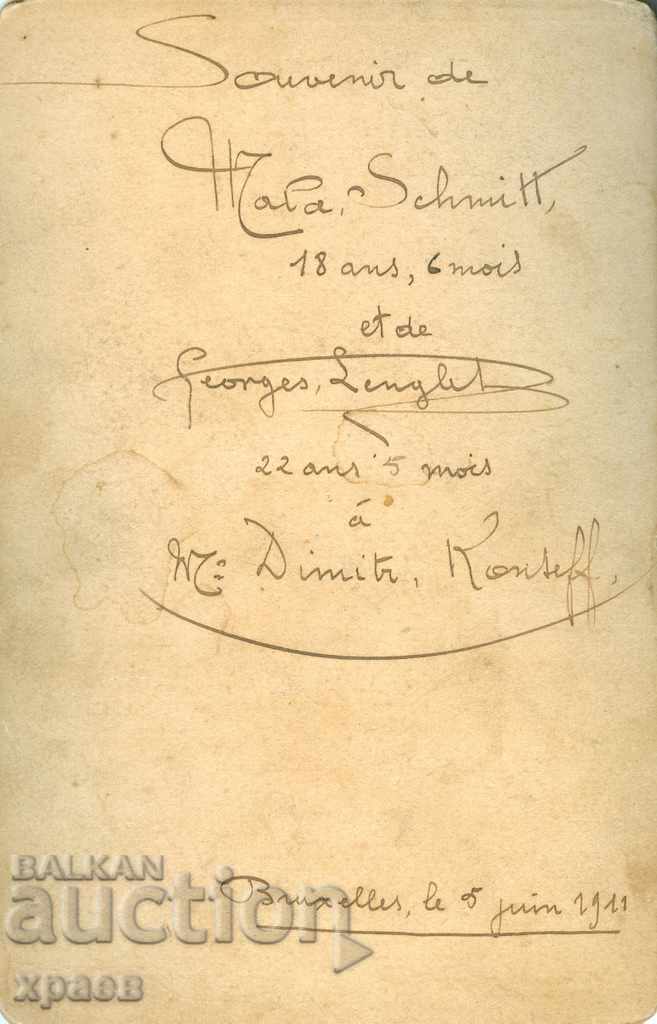 Souvenir de
Mala, Schmitt,
18 ans, 6 mois
et de
Georges, Lenglet
22 ans 5 mois
à
Mr: Dimitr, Konseff.
Bruxelles, le 5 juin 1911
BALKAN
auction
храов